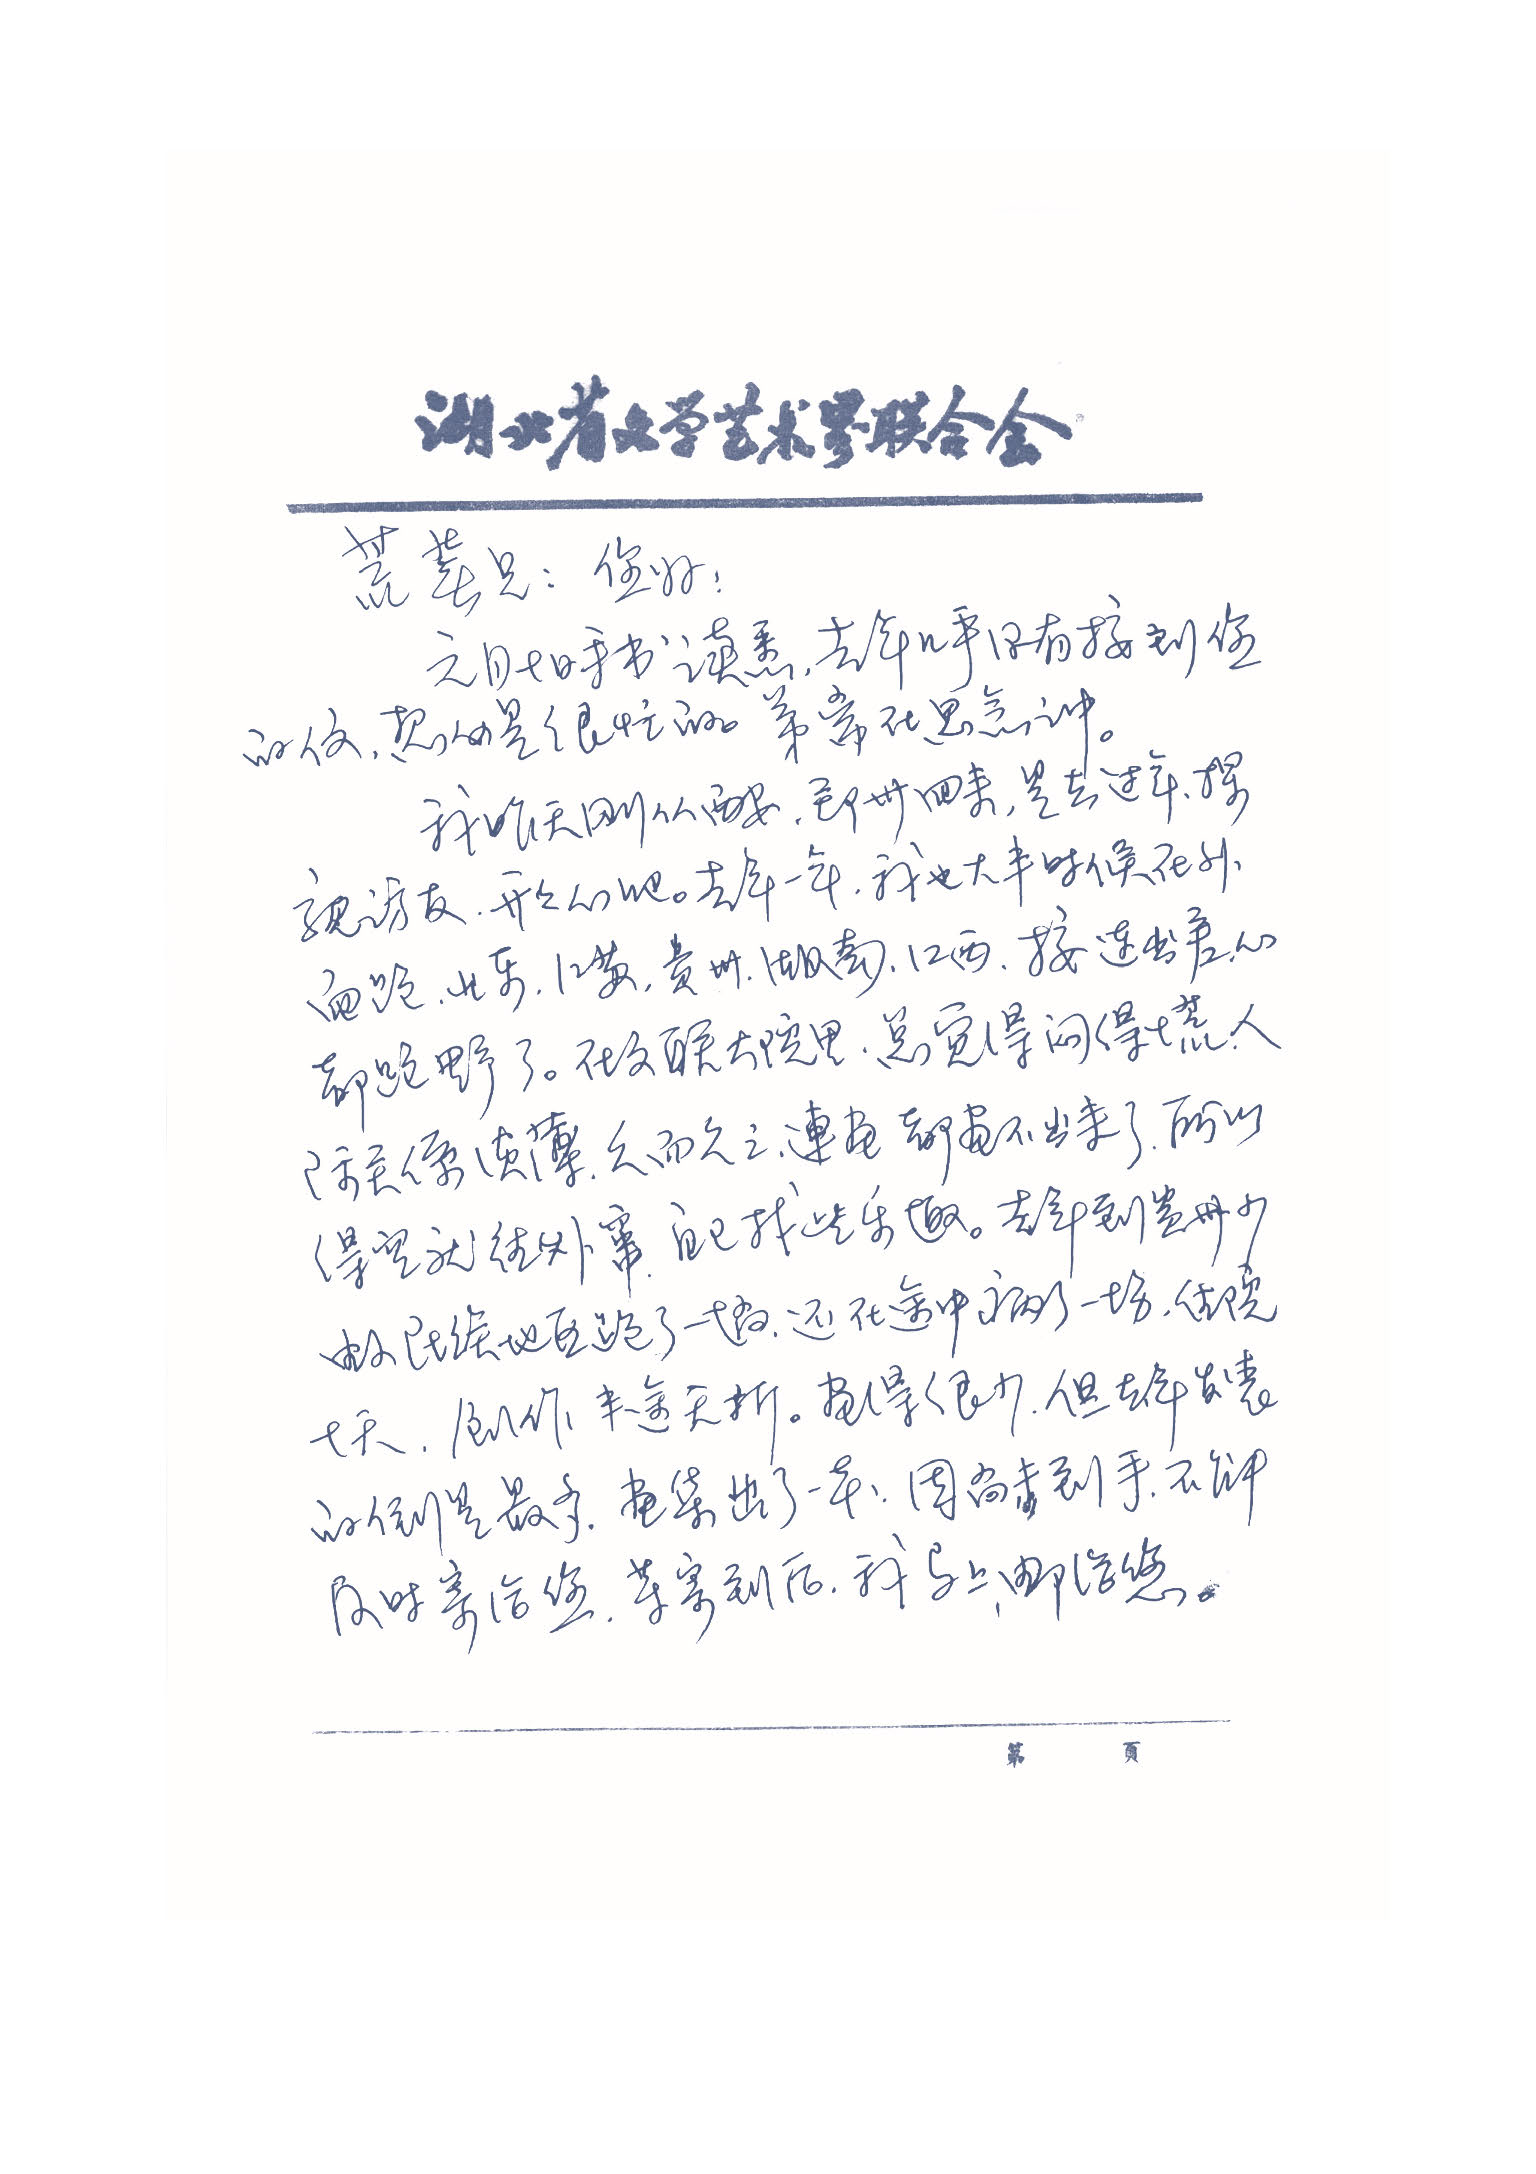 湖北省文学艺术界联合会
荒芜兄：您好！
元月七日手书读悉，去年几乎没有接到您
的信，想您是很忙的。弟常在思念中。
我昨天刚从西安、郑州回来，是去过年、探
亲访友、开开心吧。去年一年，我也大半时候在外
面跑，北京、江苏、贵州、湖南、江西，接连出差，心
都跑野了。在文联大院里，总觉得闷得慌，人
际关系淡薄，久而久之，連画都画不出来了，所以
得空就往外窜，自己找些乐趣。去年到贵州少
数民族地区跑了一趟，还在途中病了一场，住院
七天，创作半途夭折。画得很少，但去年发表
的倒是最多，画集出了一本，因尚未到手，不能
及时寄给您，等寄到后，我马上邮给您。
第 頁